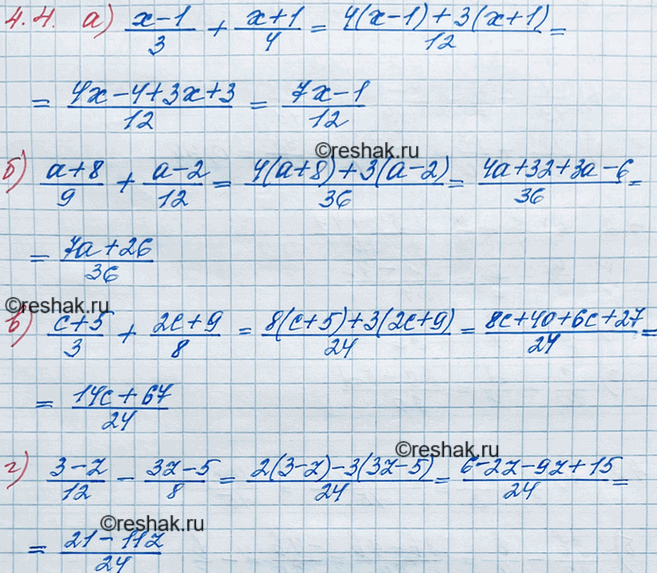 4.4. а) (x-1)/3 + (x+1)/4 = (4(x-1)+3(x+1))/12 =
= (4x-4+3x+3)/12 = (7x-1)/12
©reshak.ru
б) (a+8)/9 + (a-2)/12 = (4(a+8)+3(a-2))/36 = (4a+32+3a-6)/36 =
= (7a+26)/36
©reshak.ru
в) (c+5)/3 + (2c+9)/8 = (8(c+5)+3(2c+9))/24 = (8c+40+6c+27)/24 =
= (14c+67)/24
©reshak.ru
г) (3-z)/12 - (3z-5)/8 = (2(3-z)-3(3z-5))/24 = (6-2z-9z+15)/24 =
©reshak.ru
= (21-11z)/24